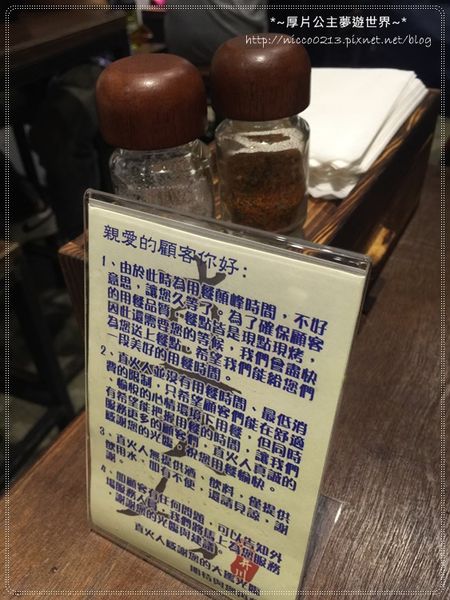 *~厚片公主夢遊世界~*
http://nicco0213.pixnet.net/blog
親愛的顧客你好:
1、由於此時為用餐顛峰時間，不好
意思，讓您久等了。為了確保顧客
的用餐品質，餐點皆是現點現烤，
因此還需要您的等候，我們會盡快
為您送上餐點。希望我們能給您們
一段美好的用餐時間。
2、直火人並沒有用餐時間、最低消
費的限制，只希望顧客們能在舒適
愉悅的心情環境下用餐，但同時
有希望能把握用餐的時間，讓我們
服務更多的顧客們，直火人真誠的
感謝您的光臨，祝您用餐愉快。
3、直火人無提供酒、飲料，僅提供
飲用水，如有不便，還請見諒，謝
4、如顧客有任何問題，可以告知外
場服務人員，我們將馬上為您服務
謝謝您的光臨與
直火人感謝您的大駕
期待與